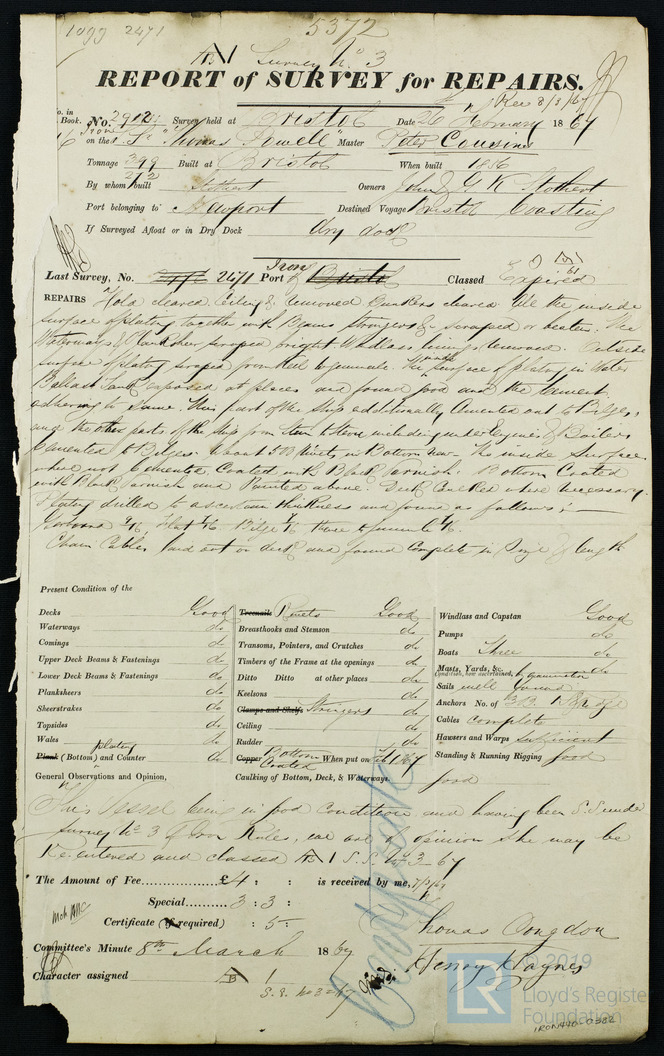 1099 2471
5372
Survey No 3
REPORT of SURVEY for REPAIRS.
Rec 8/3/67
No. in Book. No. 2912 Survey held at Bristol Date 26 February 1867
Iron
on the Sr "Thomas Powell" Master Peter Cousins
Tonnage 399 Built at Bristol When built 1856
272
By whom built Stothert Owners John & G K Stothert
Port belonging to Newport Destined Voyage Bristol Coasting
If Surveyed Afloat or in Dry Dock dry dock
Iron
Last Survey, No. 2471 Port Classed Expired
61
REPAIRS Hold cleared Ceiling removed Bunkers cleared All the inside
surface of plating together with Beams Stringers &c scraped or beaten. The
Waterways & Planksheer scraped bright Windlass linings removed. Outside
surface of plating scraped from Keel to gunwale. The inside surface of plating in Water
Ballast Tank exposed at places and found good and the Cement
adhering to same. This part of the Ship additionally Cemented out to Bilges,
and the other parts of the Ship from Stem to Stern including under Engines & Boilers
Cemented to Bilges. About 500 Rivets in Bottom new. The inside Surface
where not Cemented, Coated with Black Varnish. Bottom Coated
with Black Varnish and Painted above. Deck Caulked where necessary.
Plating drilled to ascertain thickness and found as follows:—
Garboard Flat Bilge thence to gunwale
Chain Cables laid out on deck and found Complete in Size & length
Present Condition of the
Decks Good
Waterways do
Comings do
Upper Deck Beams & Fastenings do
Lower Deck Beams & Fastenings do
Planksheers do
Sheerstrakes do
Topsides do
Wales do
plating
Plank (Bottom) and Counter do
Treenails Rivets Good
Breasthooks and Stemson do
Transoms, Pointers, and Crutches do
Timbers of the Frame at the openings do
Ditto Ditto at other places do
Keelsons do
Clamps and Shelfs Stringers do
Ceiling do
Rudder do
Copper Bottom Coated When put on Feb /67
Caulking of Bottom, Deck, & Waterways. good
Windlass and Capstan Good
Pumps do
Boats Three do
Masts, Yards, &c. do
Condition, how ascertained, by examination
Sails well found
Anchors No. of 3 B. 1 S. 1 Kedge
Cables complete
Hawsers and Warps sufficient
Standing & Running Rigging good
General Observations and Opinion,
This Vessel being in good Condition and having been S.S. under
Survey No 3 of Iron Rules, we are of opinion she may be
Re-entered and classed A 1 S.S. No 3-67
The Amount of Fee £4 : : is received by me, 7/3/67
Special 3 : 3 :
Certificate (if required) : 5 :
Committee's Minute 8th March 1867
Character assigned B 1
S.S. No 3-67
Thomas Congdon
Henry Haynes
© 2019
LR
Lloyd's Register
Foundation
IRON440-0382